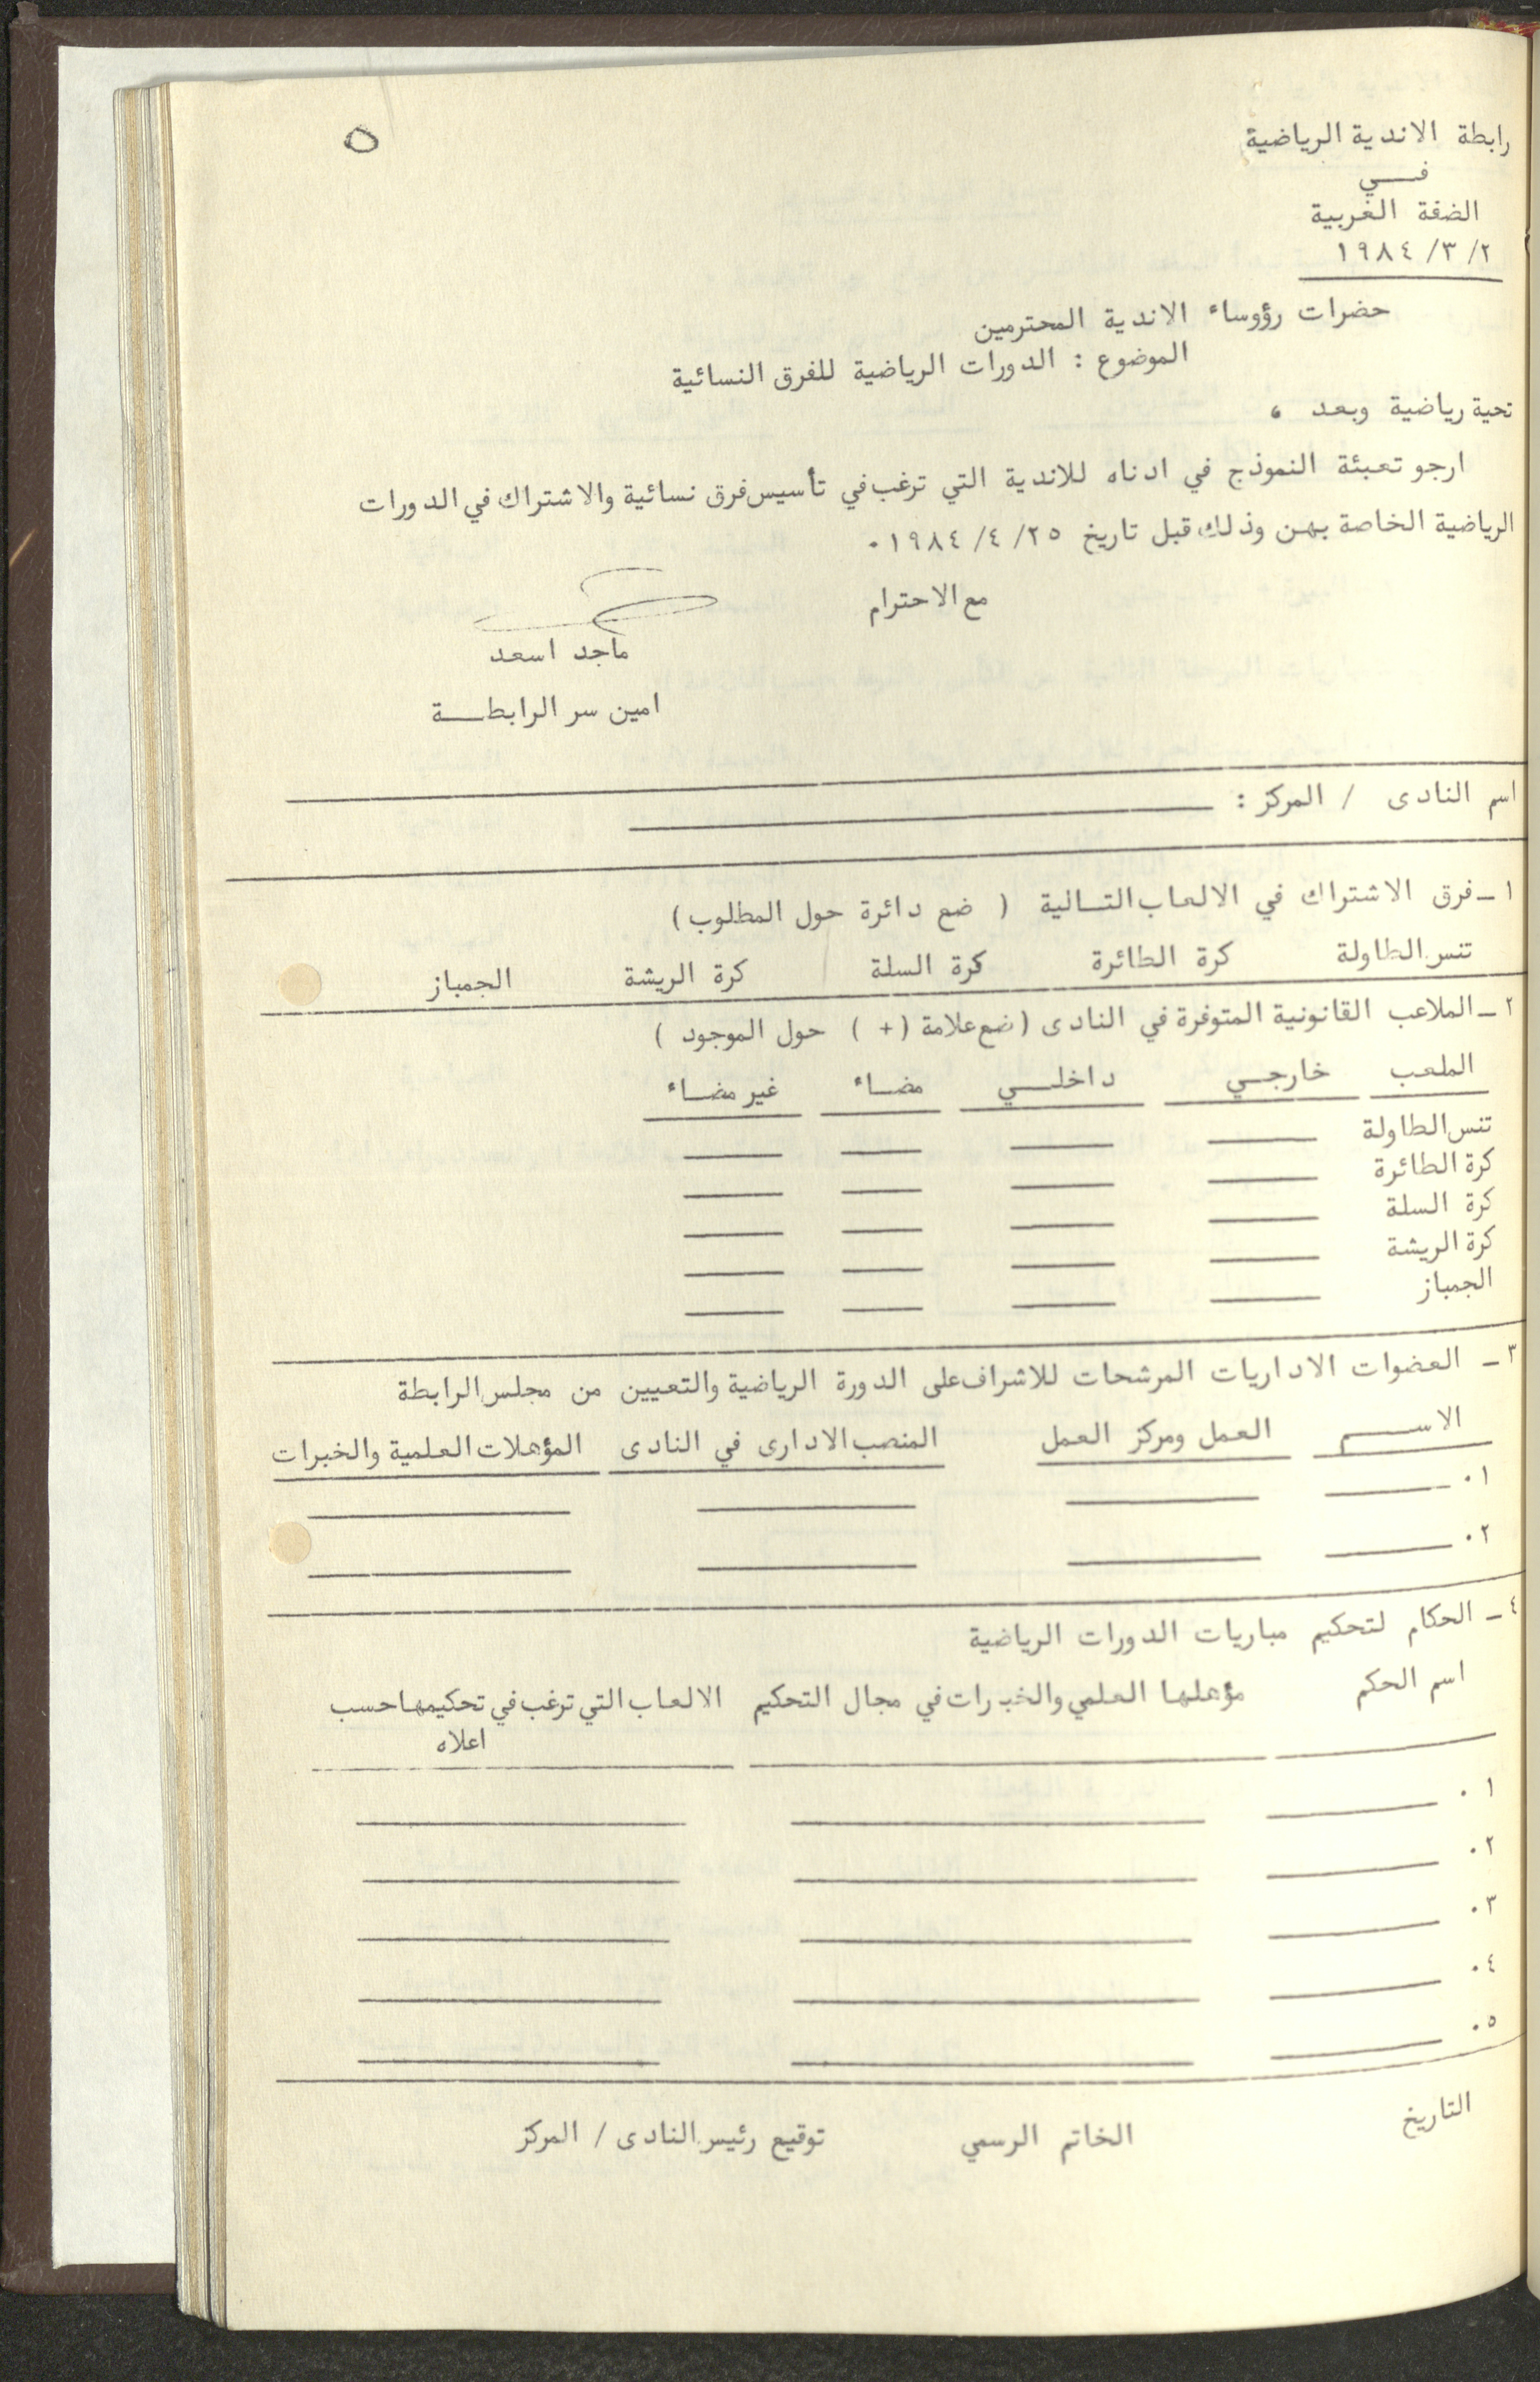 ٥
رابطة الاندية الرياضية
فــــي
الضفة الغربية
٢/ ٣/ ١٩٨٤
حضرات رؤوساء الاندية المحترمين
الموضوع : الدورات الرياضية للفرق النسائية
تحية رياضية وبعد ،
ارجو تعبئة النموذج في ادناه للاندية التي ترغب في تأسيس فرق نسائية والاشتراك في الدورات
الرياضية الخاصة بهن وذلك قبل تاريخ ٢٥/ ٤/ ١٩٨٤.
مع الاحترام
ماجد اسعد
امين سر الرابطـــة
اسم النادى / المركز :
١ـ فرق الاشتراك في الالعاب التــالية ( ضع دائرة حول المطلوب)
تنس الطاولة كرة الطائرة كرة السلة كرة الريشة الجمباز
٢ـ الملاعب القانونية المتوفرة في النادى (ضع علامة (+ ) حول الموجود )
الملعب خارجــي داخلـــي مضــاء غير مضــاء
تنس الطاولة
كرة الطائرة
كرة السلة
كرة الريشة
الجمباز
٣ـ العضوات الاداريات المرشحات للاشراف على الدورة الرياضية والتعيين من مجلس الرابطة
الاســـم العمل ومركز العمل المنصب الادارى في النادى المؤهلات العلمية والخبرات
١.
٢.
٤ـ الحكام لتحكيم مباريات الدورات الرياضية
اسم الحكم مؤهلها العلمي والخبرات في مجال التحكيم الالعاب التي ترغب في تحكيمها حسب
اعلاه
١.
٢.
٣.
٤.
٥.
التاريخ الخاتم الرسمي توقيع رئيس النادى / المركز